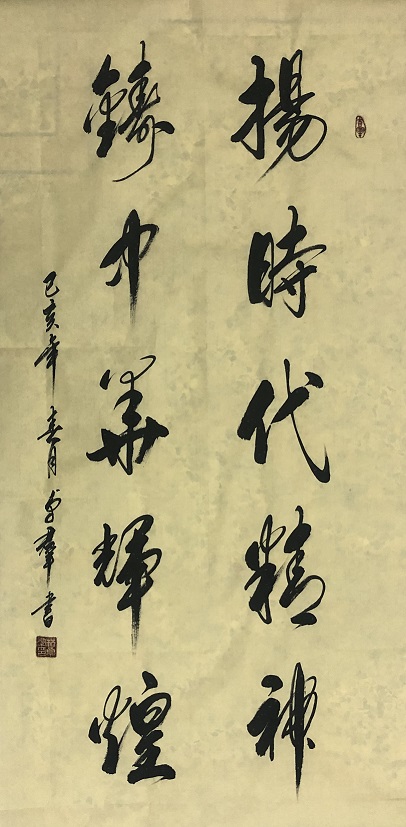 揚時代精神
鑄中華輝煌
己亥年春月卓群書